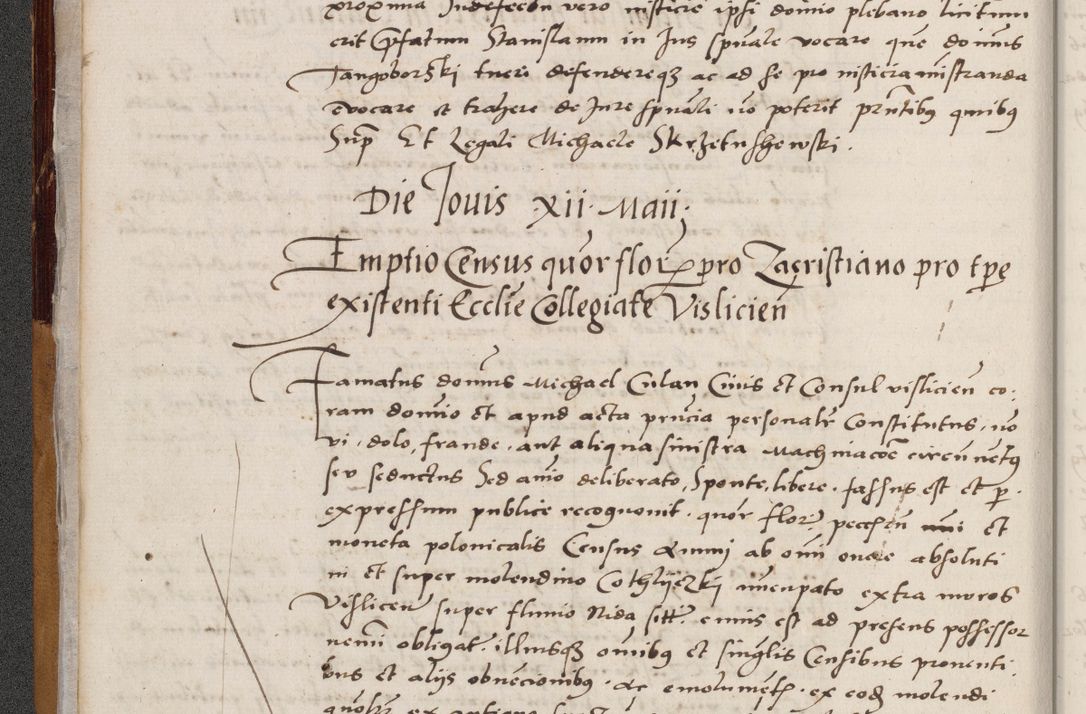 proxima Indefectu vero iusticie ipsi domino plebano licitum
erit Prefatum Stanislaum in Ius spuale vocare que domus
Jangoborski tueri defendereqʒ ac ad se pro iusticia ministranda
Evocare et trahere de Iure spuali no poterit prntibʒ quibus
Supra Et Legali Michaele Skrzetushewski.
Die Jovis XII. Maii.
Emptio Census quor flor pro Zacristiano pro tpe
existenti Ecclie Collegiate Vislicien
Famatus domus Michael Culan Civis et Consul vislicien co-
ram domio et apud acta prncia personalr Constitutus, no
vi, dolo, fraude, aut aliqua sinistra Machinacoe circunvetus
seu seductus Sed anio deliberato, Sponte, libere, fassus est et p.
expressum publice recognovit, quor flor, et
moneta polonicalis Census Annui ab omi onere absoluti
in et super molendino Cothlyczki nuncupato extra muros
Vislicen super fluvio Nida sitt. cuius est ad presens possessor
nemi obligat. illiusqʒ omibʒ et singlis Censibus proventi-
bus et aliis obvecionibʒ. Ac emolumetʒ. ex eod molendi